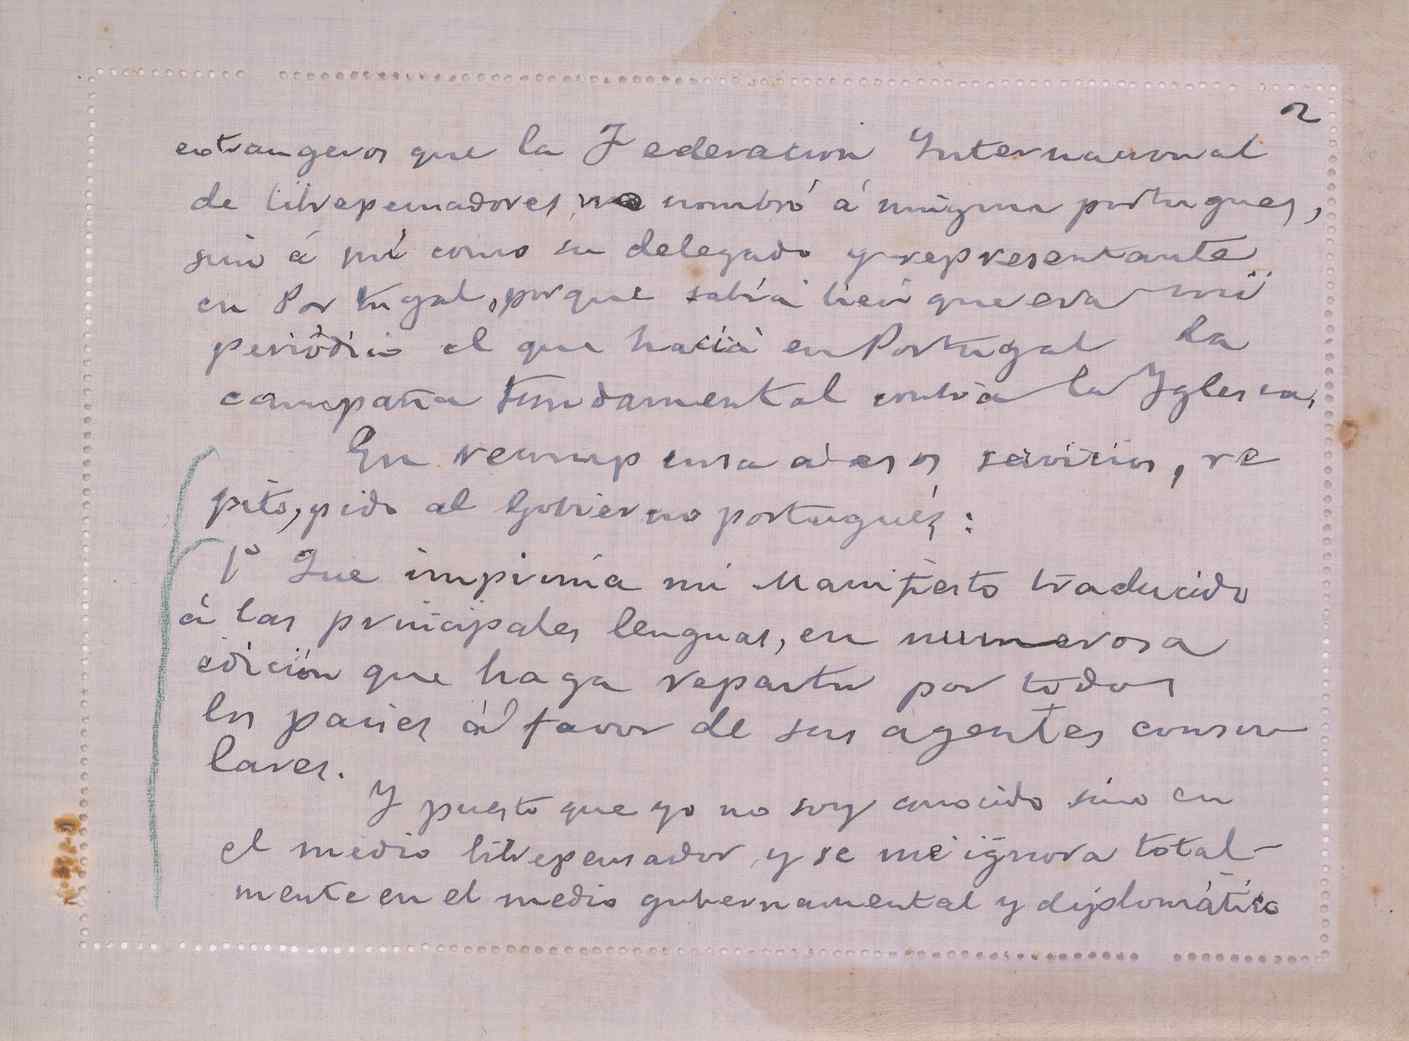 2
extrangeros que la Federacion Internacional
de librepensadores, no nombró á ningun portugues,
sino á mí como su delegado y representante
en Portugal, porque sabía bien que era mi
periódico el que hacía en Portugal la
campaña fundamental contra la Yglesia,
En recompensa a esos servicios, re
pito, pido al Gobierno portugués:
1º Que imprima mi Manifiesto traducido
á las principales lenguas, en numerosa
edición que haga repartir por todos
los paises á favor de sus agentes consu
lares.
Y puesto que yo no soy conocido sino en
el medio librepensador, y se me ignora total-
mente en el medio gubernamental y diplomático